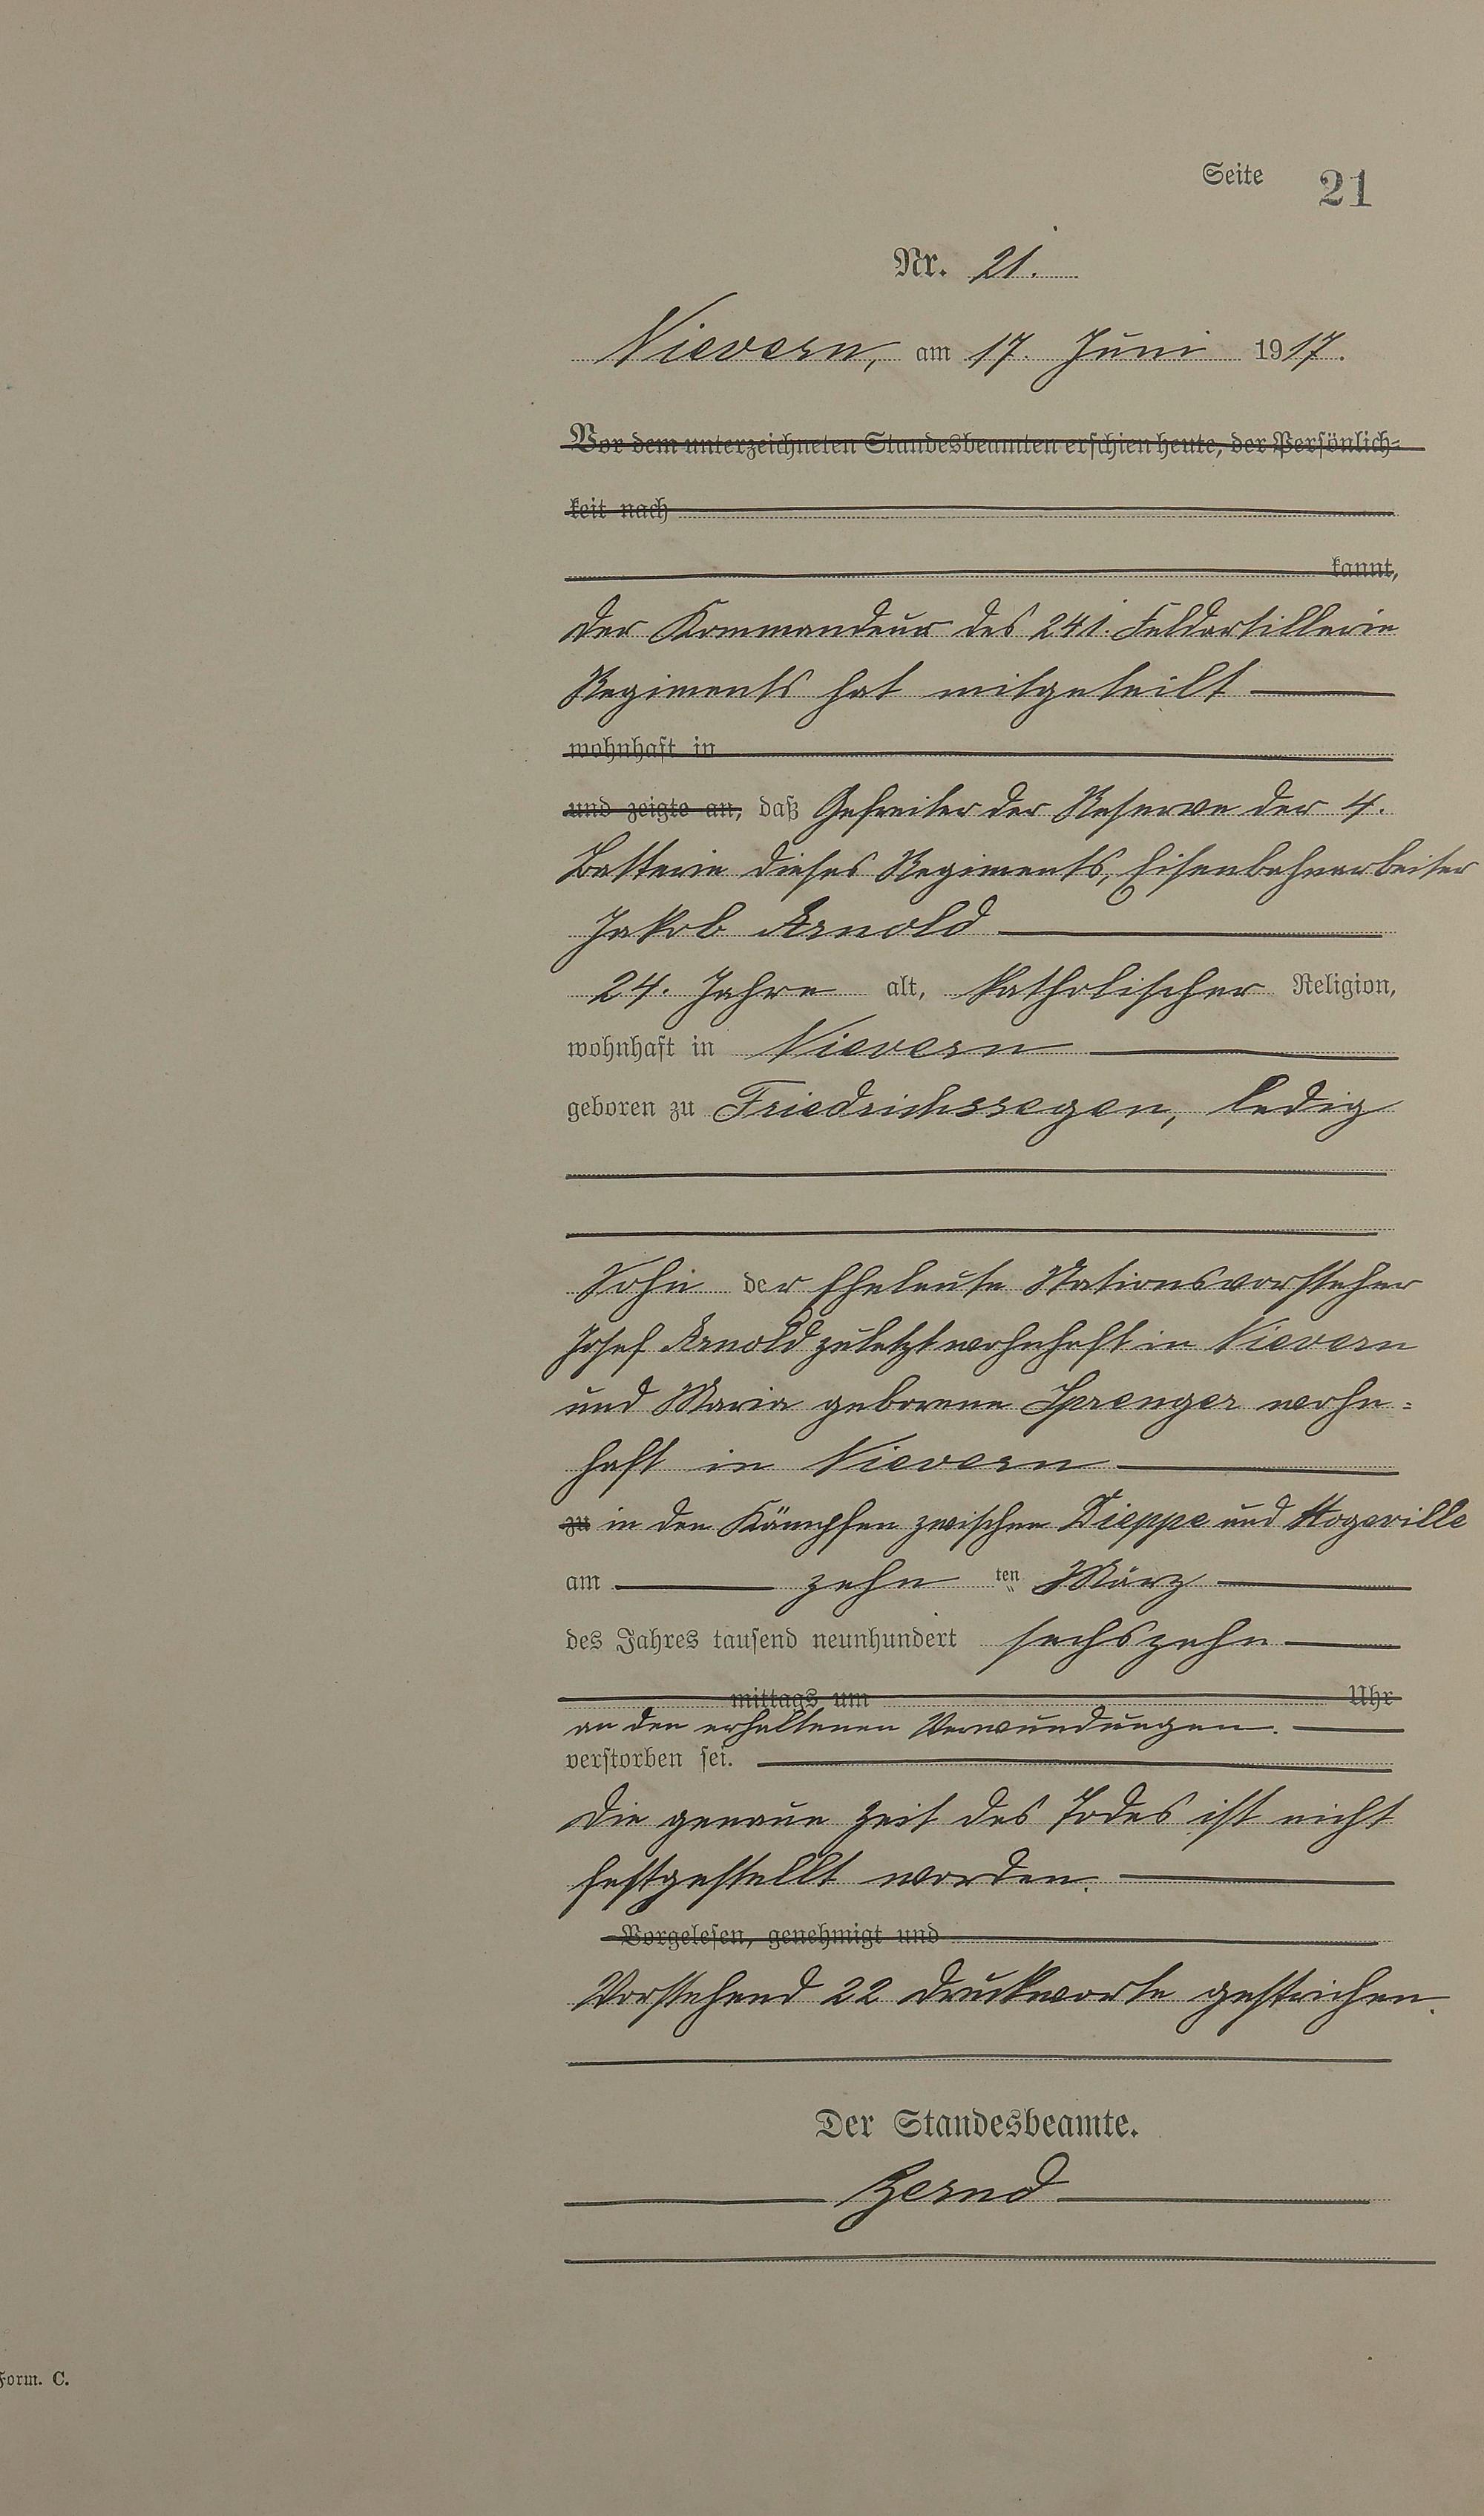 Seite 21
Nr. 21.
Nievern, am 17. Juni 1917.
Vor dem unterzeichneten Standesbeamten erschien heute, der Persönlich-
keit nach
kannt,
Der Kommandeur des 241. Feldartillerie
Regiments hat mitgeteilt
wohnhaft in
und zeigte an, daß Gefreiter der Reserve der 4.
Batterie dieses Regiments, Eisenbahnarbeiter
Jakob Arnold
24. Jahre alt, katholischer Religion,
wohnhaft in Nievern
geboren zu Friedrichssegen, ledig
Sohn der Eheleute Stationsvorsteher
Josef Arnold zuletzt wohnhaft in Nievern
und Maria geborene Sprenger wohn=
haft in Nievern
zu in den Kämpfen zwischen Dieppe und Mogeville
am zehn ten März
des Jahres tausend neunhundert sechszehn
mittags um Uhr
an den erhaltenen Verwundungen.
verstorben sei.
Die genaue Zeit des Todes ist nicht
festgestellt worden.
Vorgelesen, genehmigt und
Vorstehend 22 Druckworte gestrichen.
Der Standesbeamte.
Zernd
Form. C.